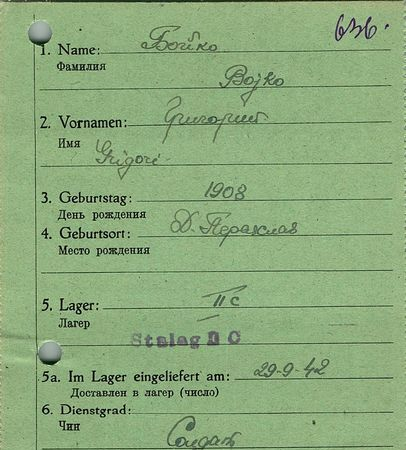 636.
1. Name: Бойко
Фамилия
Bojko
2. Vornamen: Григорий
Имя
Grigori
3. Geburtstag: 1908
День рождения
4. Geburtsort: Д. Пераклав
Место рождения
5. Lager: II c
Лагер
Stalag II C
5a. Im Lager eingeliefert am: 29-9-42
Доставлен в лагер (число)
6. Dienstgrad:
Чин
Солдат